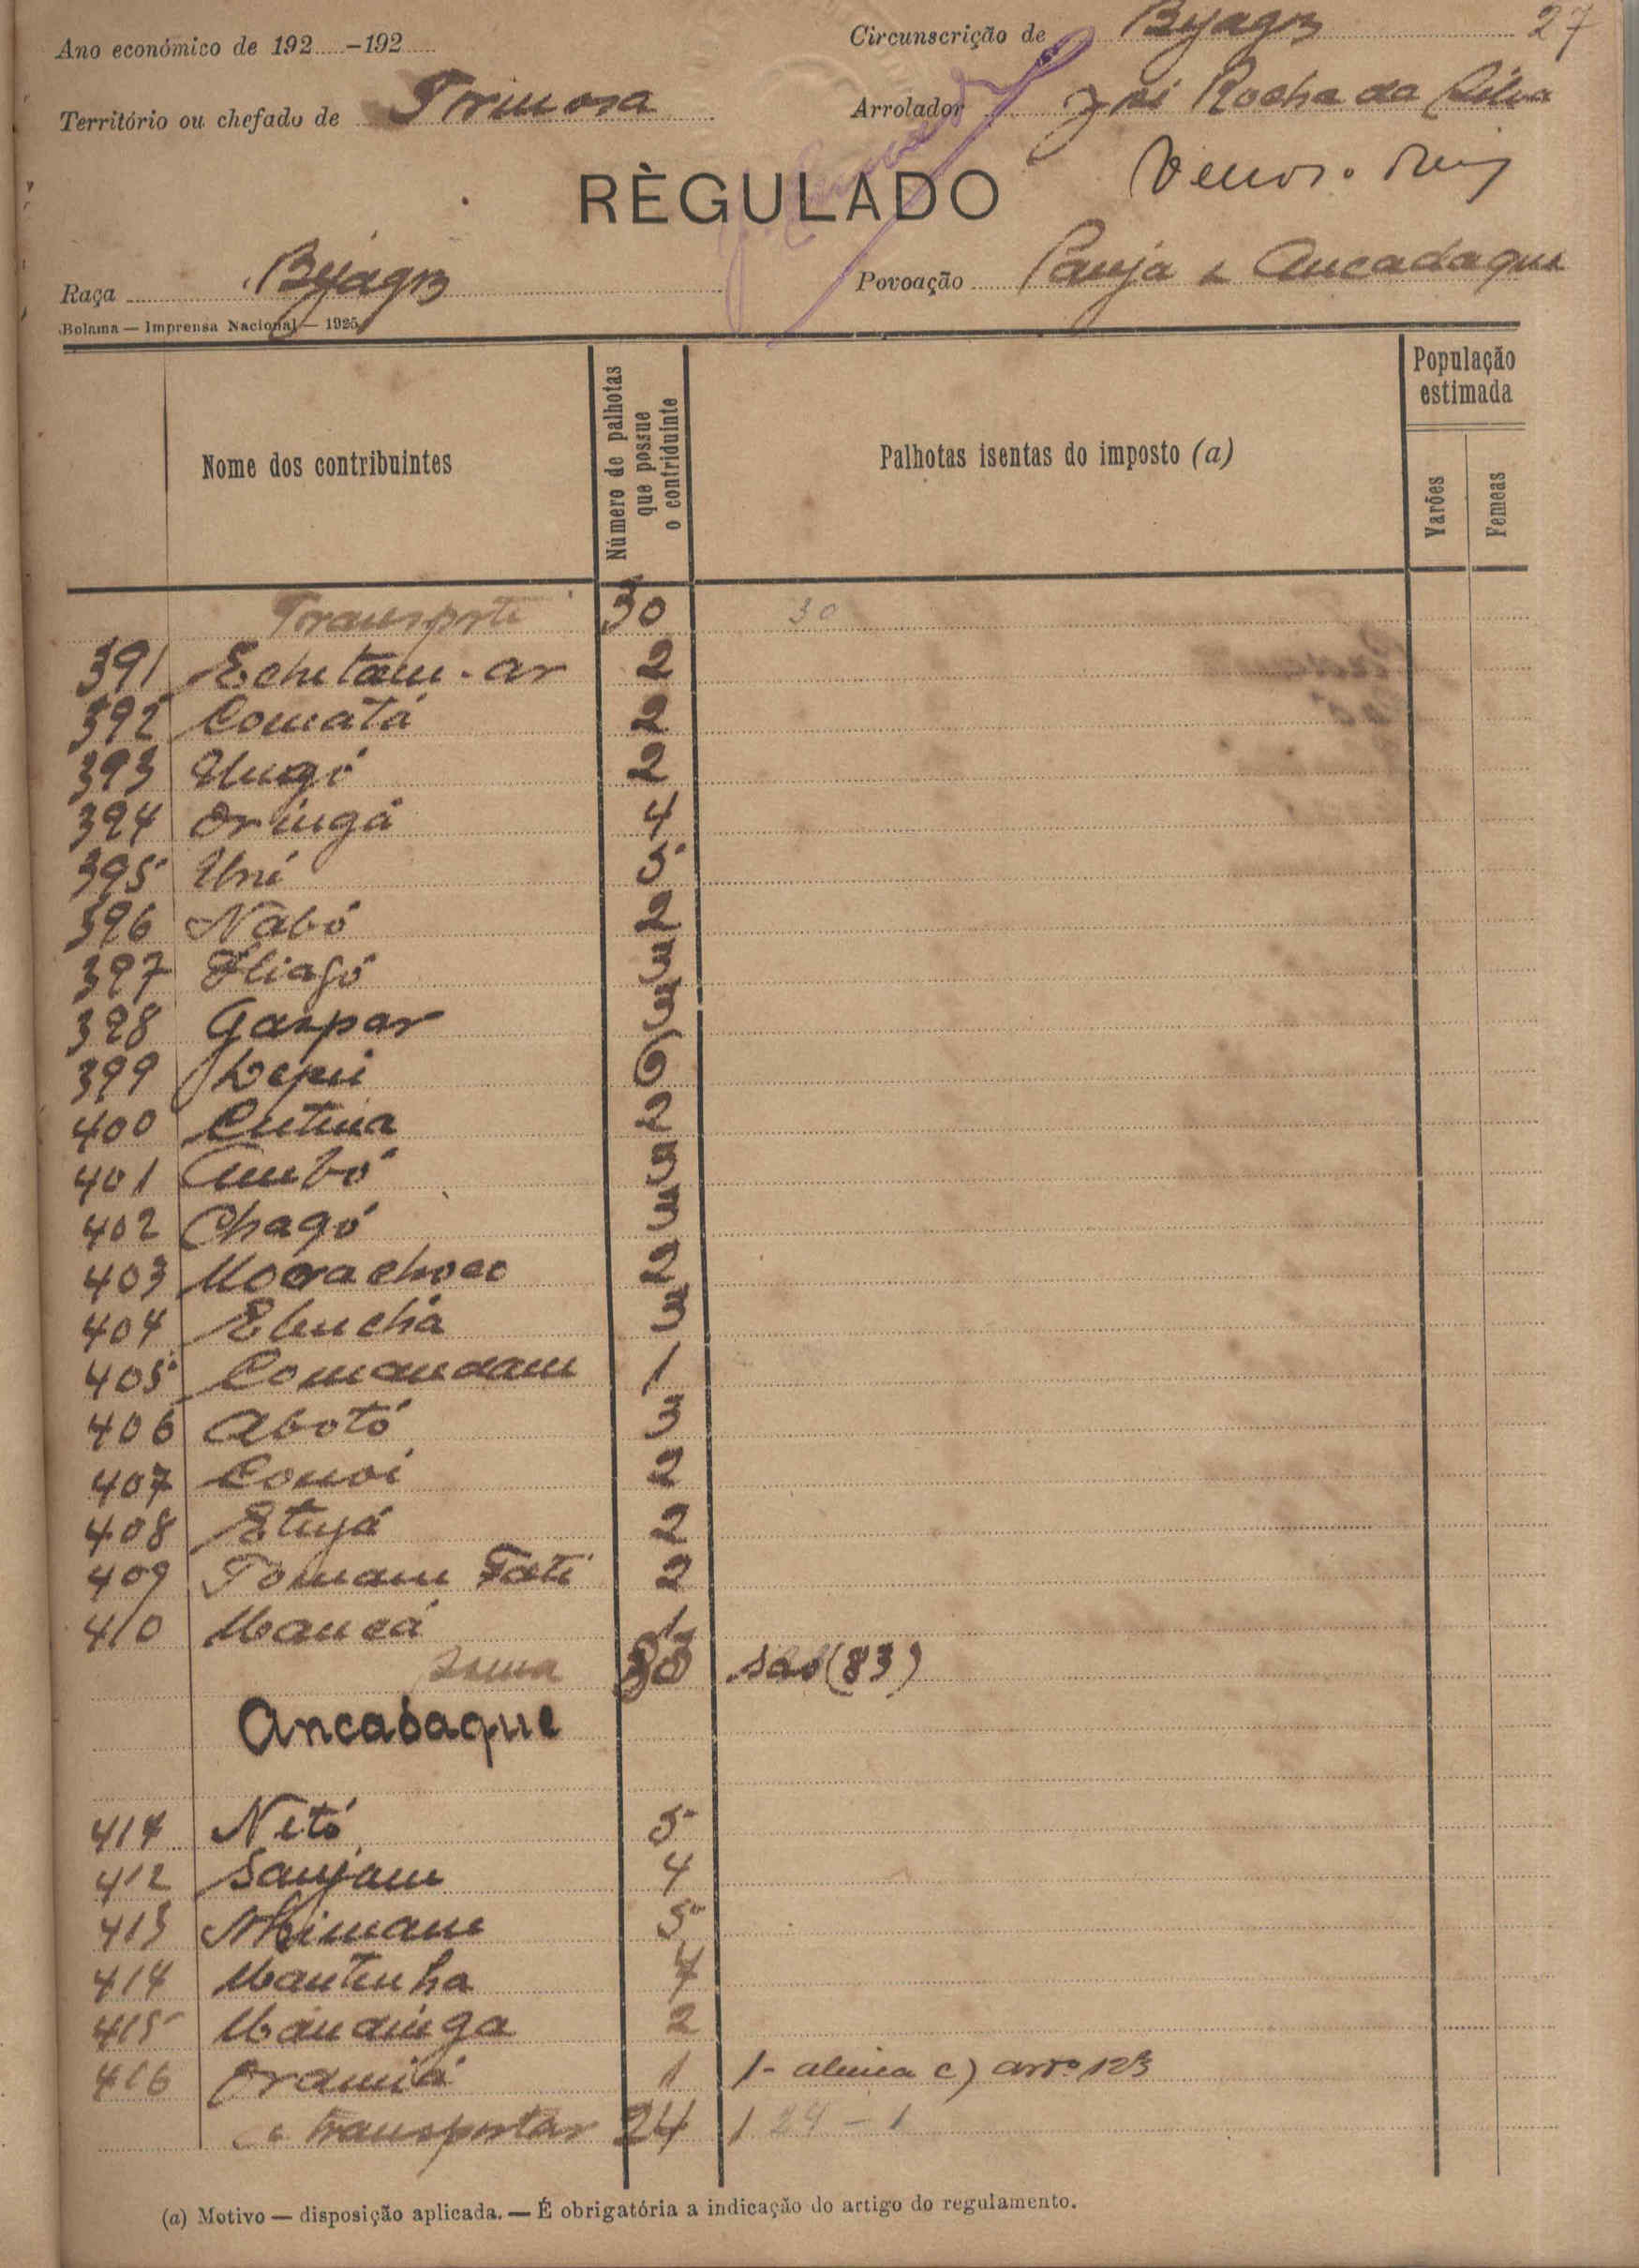 Ano económico de 192.....-192.....
Circunscrição de Byagoz 27
Território ou chefado de Formosa
Arrolador José Rocha da Silva
RÈGULADO
Raça Byagoz
Povoação Canja e Ancadaque
Bolama — Imprensa Nacional — 1925
Nome dos contribuintes
Número de palhotas que possue o contriduinte
Palhotas isentas do imposto (a)
População estimada
Varões
Femeas
Transporte 30 30
391 Echutam-ar 2
392 Comatá 2
393 Ungó 2
394 Oringá 4
395 Uni 5
396 Nabó 2
397 Eliagó 3
398 Gaspar 3
399 Depui 6
400 Cutina 2
401 Cumbó 3
402 Chagó 3
403 Moorachoco 2
404 Ebuchá 3
405 Comandam 1
406 Abotó 3
407 Conoi 2
408 Etuyá 2
409 Tomam Fati 2
410 Mancá 1
Soma 83 são (83)
Ancadaque
411 Netó 5
412 Sanjam 4
413 Nhimam 5
414 Mantenha 7
415 Mandinga 2
416 Oramiá 1 1- alinea c) artº 123
a transportar 24 1 24 - 1
(a) Motivo — disposição aplicada. — É obrigatória a indicação do artigo do regulamento.